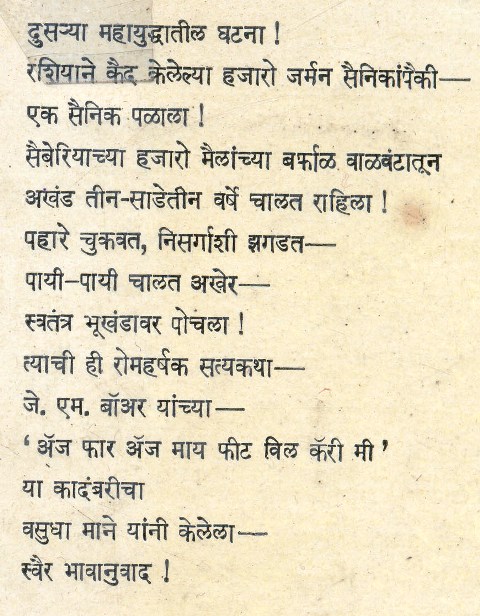 दुसऱ्या महायुद्धातील घटना !
रशियाने कैद केलेल्या हजारो जर्मन सैनिकांपैकी—
एक सैनिक पळाला !
सैबेरियाच्या हजारो मैलांच्या बर्फाळ वाळवंटातून
अखंड तीन-साडेतीन वर्षे चालत राहिला !
पहारे चुकवत, निसर्गाशी झगडत—
पायी-पायी चालत अखेर—
स्वतंत्र भूखंडावर पोचला !
त्याची ही रोमहर्षक सत्यकथा—
जे. एम. बॉअर यांच्या—
‘ॲज फार ॲज माय फीट विल कॅरी मी’
या कादंबरीचा
वसुधा माने यांनी केलेला—
स्वैर भावानुवाद !